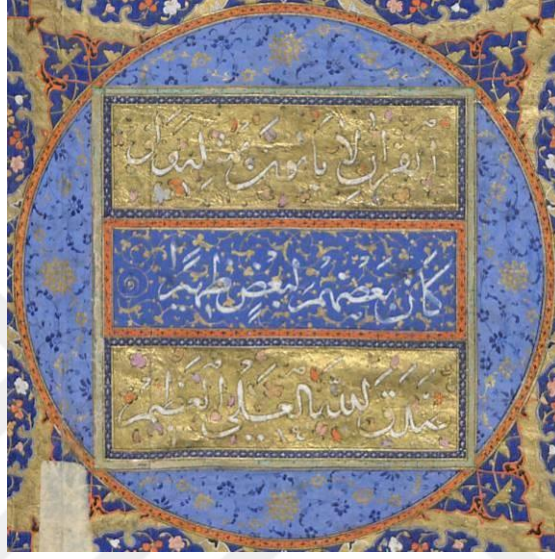 القرآن لا يأتون بمثله ولو
كَانَ بَعْضُهُمْ لِبَعْضٍ ظَهِيرًا
صَدَقَ اللَّهُ الْعَلِيُّ الْعَظِيمُ